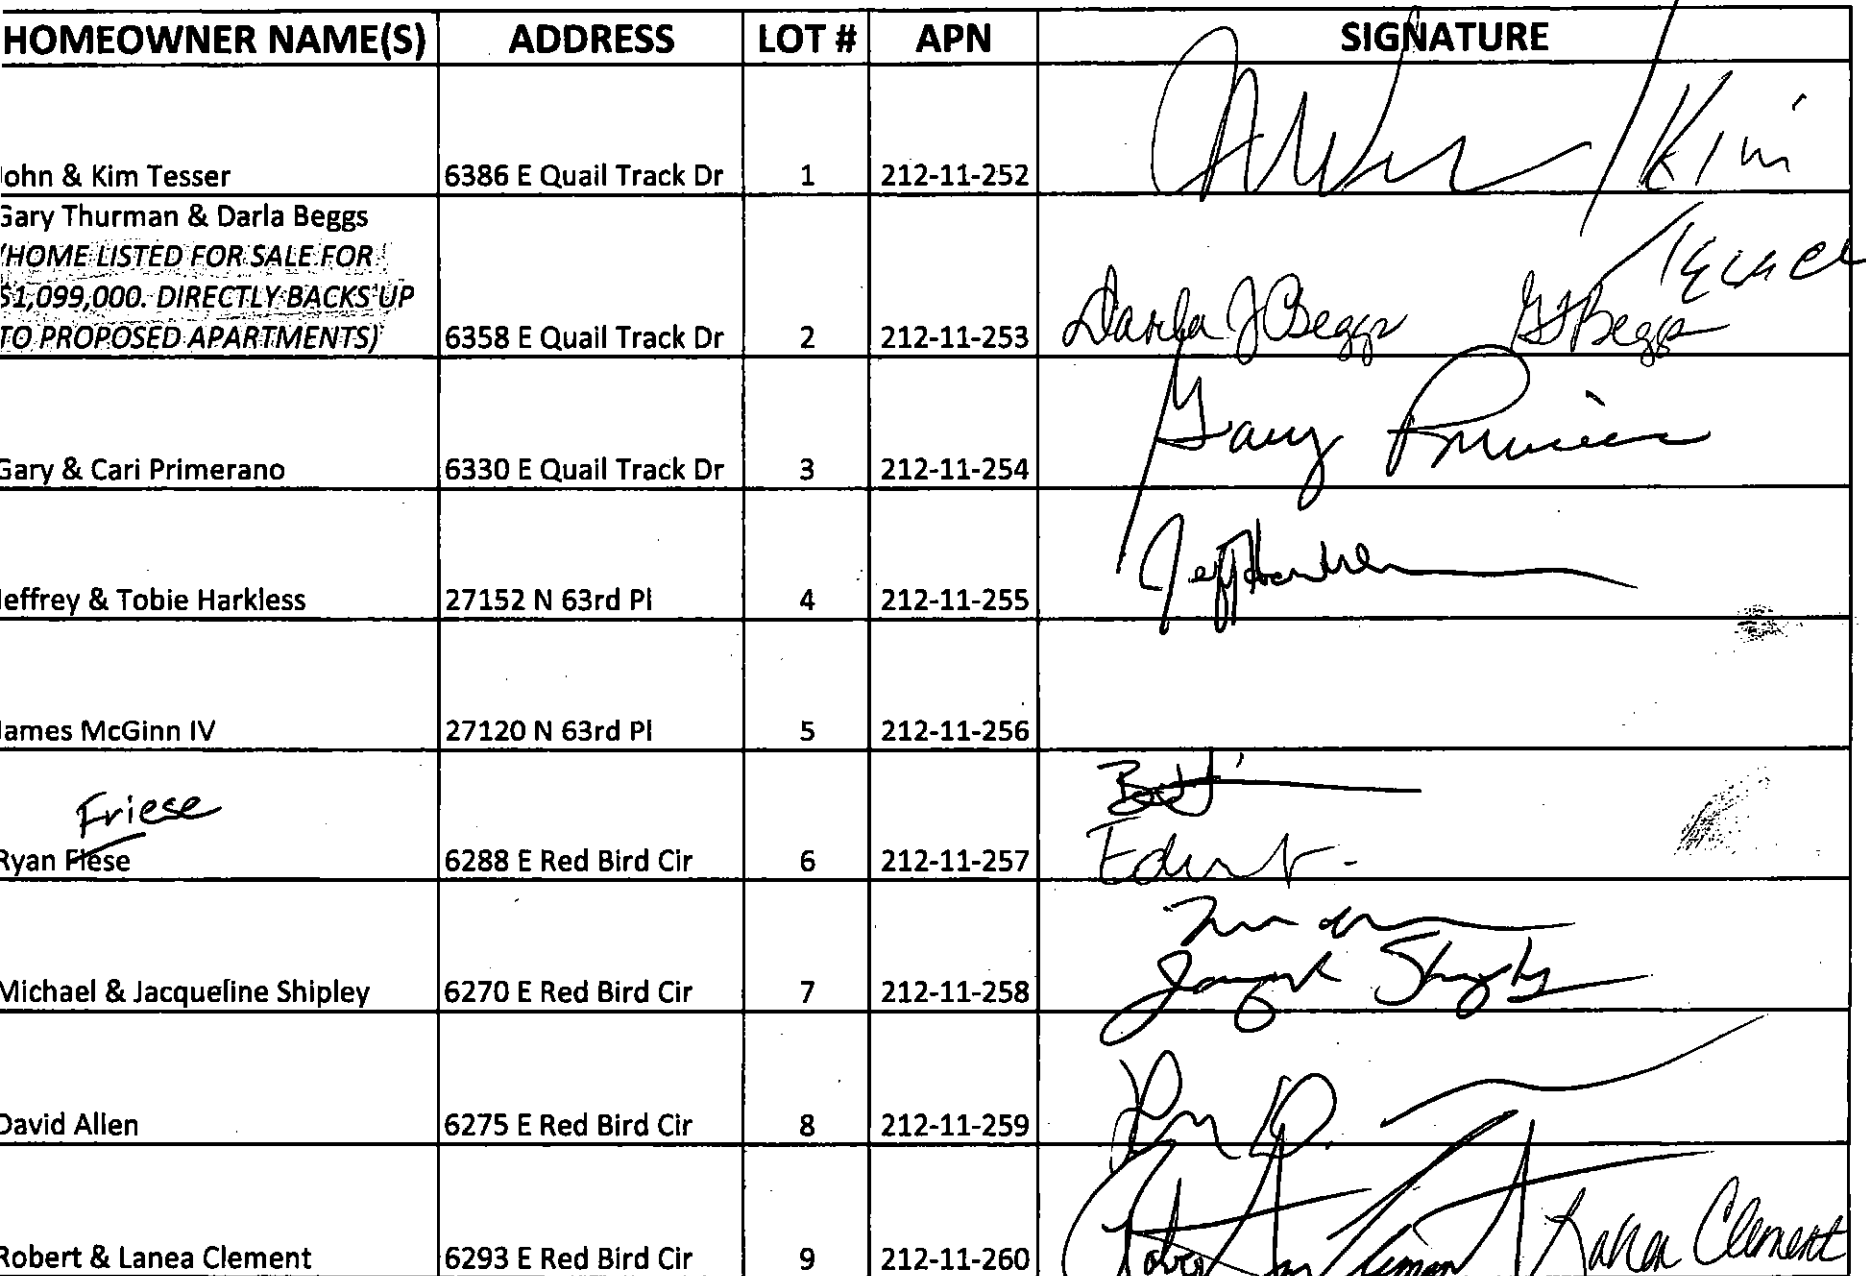 HOMEOWNER NAME(S) ADDRESS LOT # APN SIGNATURE
ohn & Kim Tesser 6386 E Quail Track Dr 1 212-11-252 Kim
Gary Thurman & Darla Beggs
(HOME LISTED FOR SALE FOR
$1,099,000. DIRECTLY BACKS UP
TO PROPOSED APARTMENTS) 6358 E Quail Track Dr 2 212-11-253 Darla J Beggs G T Beggs
Gary & Cari Primerano 6330 E Quail Track Dr 3 212-11-254 Gary
Jeffrey & Tobie Harkless 27152 N 63rd Pl 4 212-11-255 Jeff
James McGinn IV 27120 N 63rd Pl 5 212-11-256
Friese
Ryan Fiese 6288 E Red Bird Cir 6 212-11-257
Michael & Jacqueline Shipley 6270 E Red Bird Cir 7 212-11-258
David Allen 6275 E Red Bird Cir 8 212-11-259
Robert & Lanea Clement 6293 E Red Bird Cir 9 212-11-260 Lanea Clement